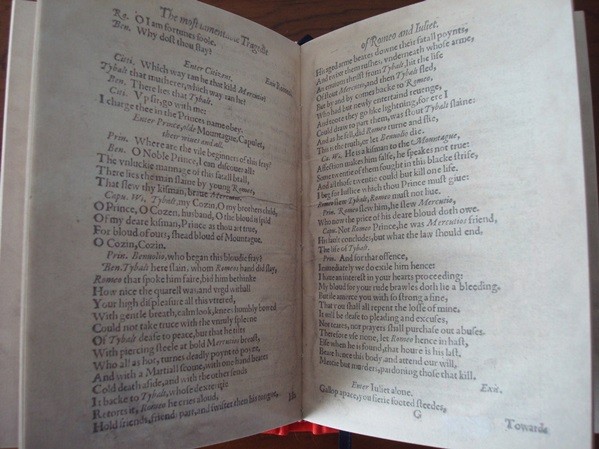 The most lamentable Tragedie
Ro. O I am fortunes foole.
Ben. Why dost thou stay?
Exit Romeo.
Enter Citizens.
Citti. Which way ran he that kild Mercutio?
Tybalt that mutherer, which way ran he?
Ben. There lies that Tybalt.
Citi. Vp sir, go with me:
I charge thee in the Princes name obey.
Enter Prince, olde Mountague, Capulet,
their wiues and all.
Prin. Where are the vile beginners of this fray?
Ben. O Noble Prince, I can discouer all:
The vnluckie mannage of this fatall brall,
There lies the man slaine by young Romeo,
That slew thy kisman, braue Mercutio.
Capu. Wi. Tybalt, my Cozin, O my brothers child,
O Prince, O Cozen, husband, O the bloud is spild
Of my deare kisman, Prince as thou art true,
For bloud of ours, shead bloud of Mountague.
O Cozin, Cozin.
Prin. Benuolio, who began this bloudie fray?
Ben. Tybalt here slain, whom Romeos hand did slay,
Romeo that spoke him faire, bid him bethinke
How nice the quarell was, and vrgd withall
Your high displeasure all this vttered,
With gentle breath, calm look, knees humbly bowed
Could not take truce with the vnruly spleene
Of Tybalt deafe to peace, but that he tilts
With piercing steele at bold Mercutios breast,
Who all as hot, turnes deadly poynt to poynt,
And with a Martiall scorne, with one hand beates
Cold death aside, and with the other sends
It backe to Tybalt, whose dexteritie
Retorts it, Romeo he cries aloud,
Hold friends, friends part, and swifter then his tongue,
His
of Romeo and Iuliet.
His aged arme beates downe their fatall poynts,
And twixt them rushes, vnderneath whose arme,
An enuious thrust from Tybalt, hit the life
Of stout Mercutio, and then Tybalt fled,
But by and by comes backe to Romeo,
Who had but newly entertaind reuenge,
And toote they go like lightning, for ere I
Could draw to part them, was stout Tybalt slaine:
And as he fell, did Romeo turne and flie,
This is the truth, or let Benuolio die.
Ca. Wi. He is a kisman to the Mountague,
Affection makes him false, he speakes not true:
Some twentie of them fought in this blacke strife,
And all those twentie could but kill one life.
I beg for Iustice which thou Prince must giue:
Romeo slew Tybalt, Romeo must not liue.
Prin. Romeo slew him, he slew Mercutio,
Who now the price of his deare bloud doth owe.
Capu. Not Romeo Prince, he was Mercutios friend,
His fault concludes, but what the law should end,
The life of Tybalt.
Prin. And for that offence,
Immediately we do exile him hence:
I haue an interest in your hearts proceeding:
My bloud for your rude brawles doth lie a bleeding.
But ile amerce you with so strong a fine,
That you shall all repent the losse of mine.
It will be deafe to pleading and excuses,
Nor teares, nor prayers shall purchase our abuses.
Therefore vse none, let Romeo hence in hast,
Else when he is found, that houre is his last.
Beare hence this body, and attend our will,
Mercie but murders, pardoning those that kill.
Exit.
Enter Iuliet alone.
Gallop apace, you fierie footed steedes,
G
Towards